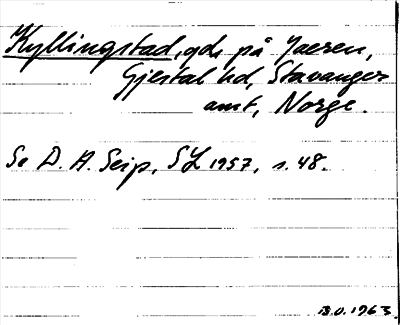 Kyllingstad, gd, på Jaeren,
Gjestal hd, Stavanger
amt, Norge.
Se D. A. Seip, SL 1957, s. 48.
B.O. 1963